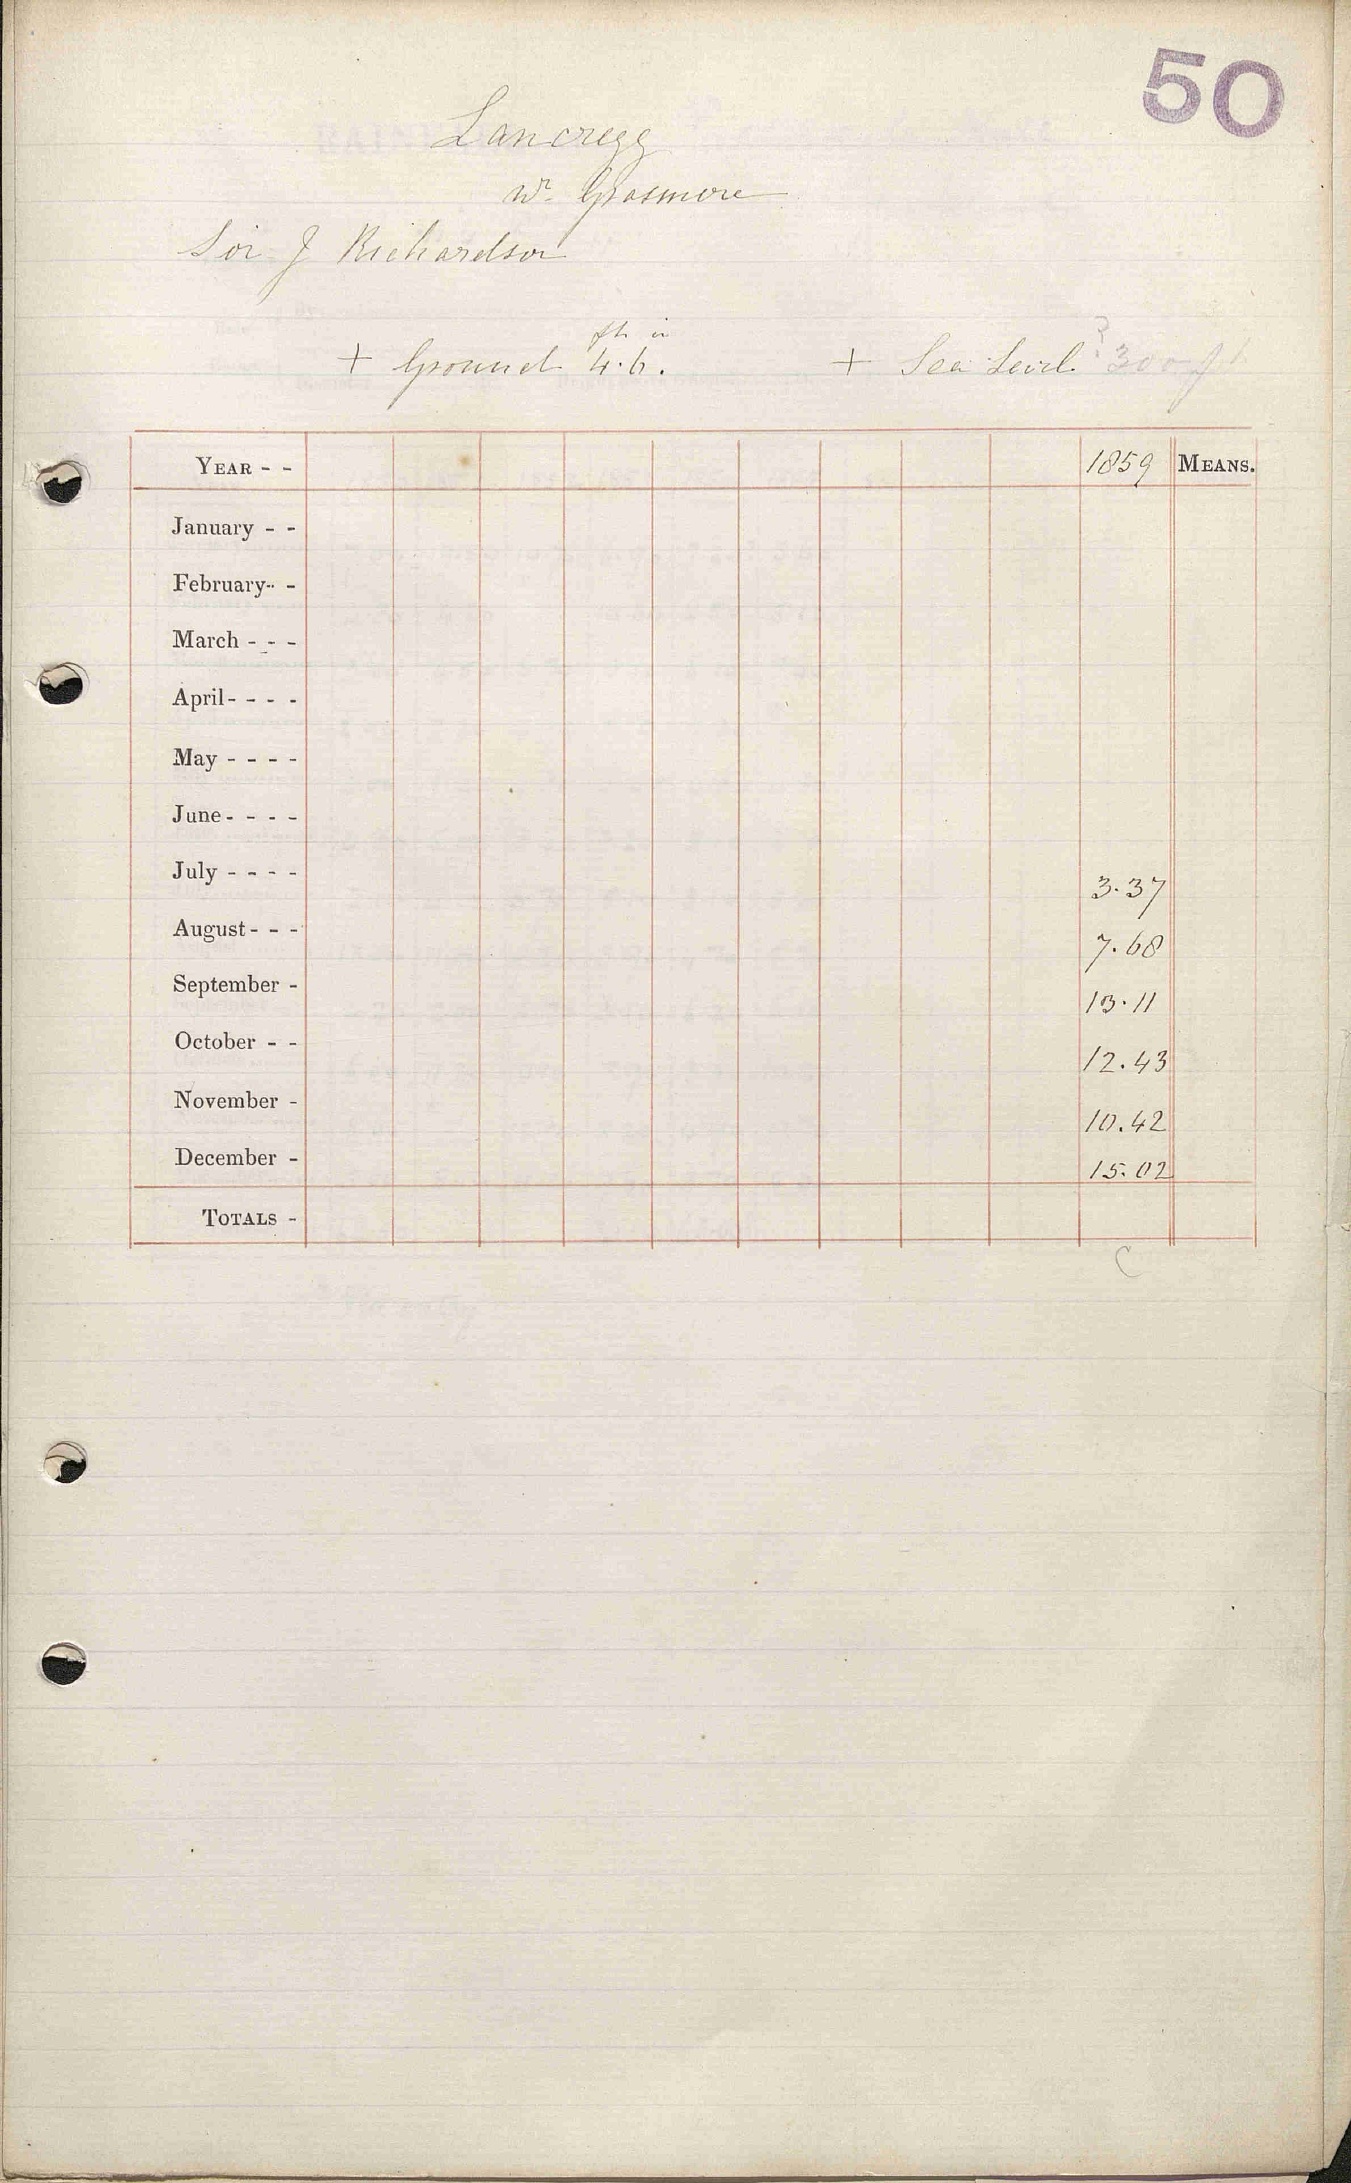 50
Lancregg
Nr. Grasmere
Sir J Richardson
ft in
+ Ground 4.6. + Sea Level ? 300 ft
YEAR - - 1859 MEANS.
January - -
February - -
March - - -
April - - - -
May - - - -
June - - - -
July - - - - 3.37
August - - - 7.68
September - 13.11
October - - 12.43
November - 10.42
December - 15.02
TOTALS -
C